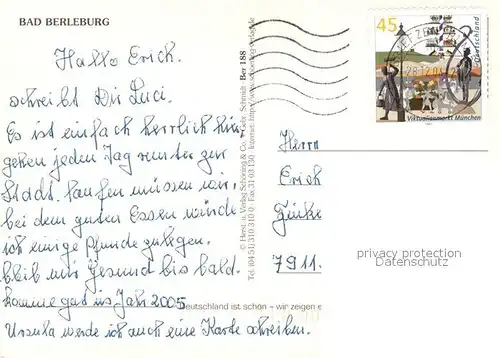 BAD BERLEBURG
Hallo Erich.
schreibt Dir Luci.
Es ist einfach herrlich hier,
gehen jeden Tag runter zur
Stadt, laufen müssen wir,
bei dem guten Essen würde
ich einige Pfunde zulegen.
bleib mir Gesund bis bald.
komme gut ins Jahr 2005
Ursula werde ich auch eine Karte schreiben.
Deutschland ist schön – wir zeigen e
© Herst. u. Verlag Schöning & Co. + Gebr. Schmidt Ber 188
Tel. (04 51) 3 10 31 0 Fax 31 03 130 Internet:
45
Deutschland
28.12.04
Viktualienmarkt München
Herrn
Erich
7911.
privacy protection
Datenschutz